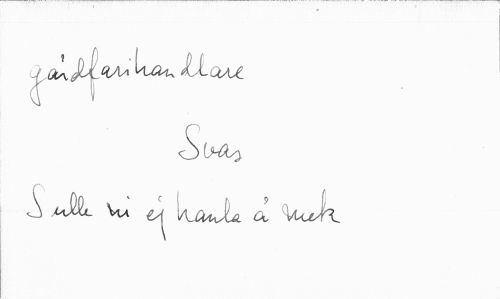 gårdfarihandlare
Svas
Sulle ni ej hanla å mek